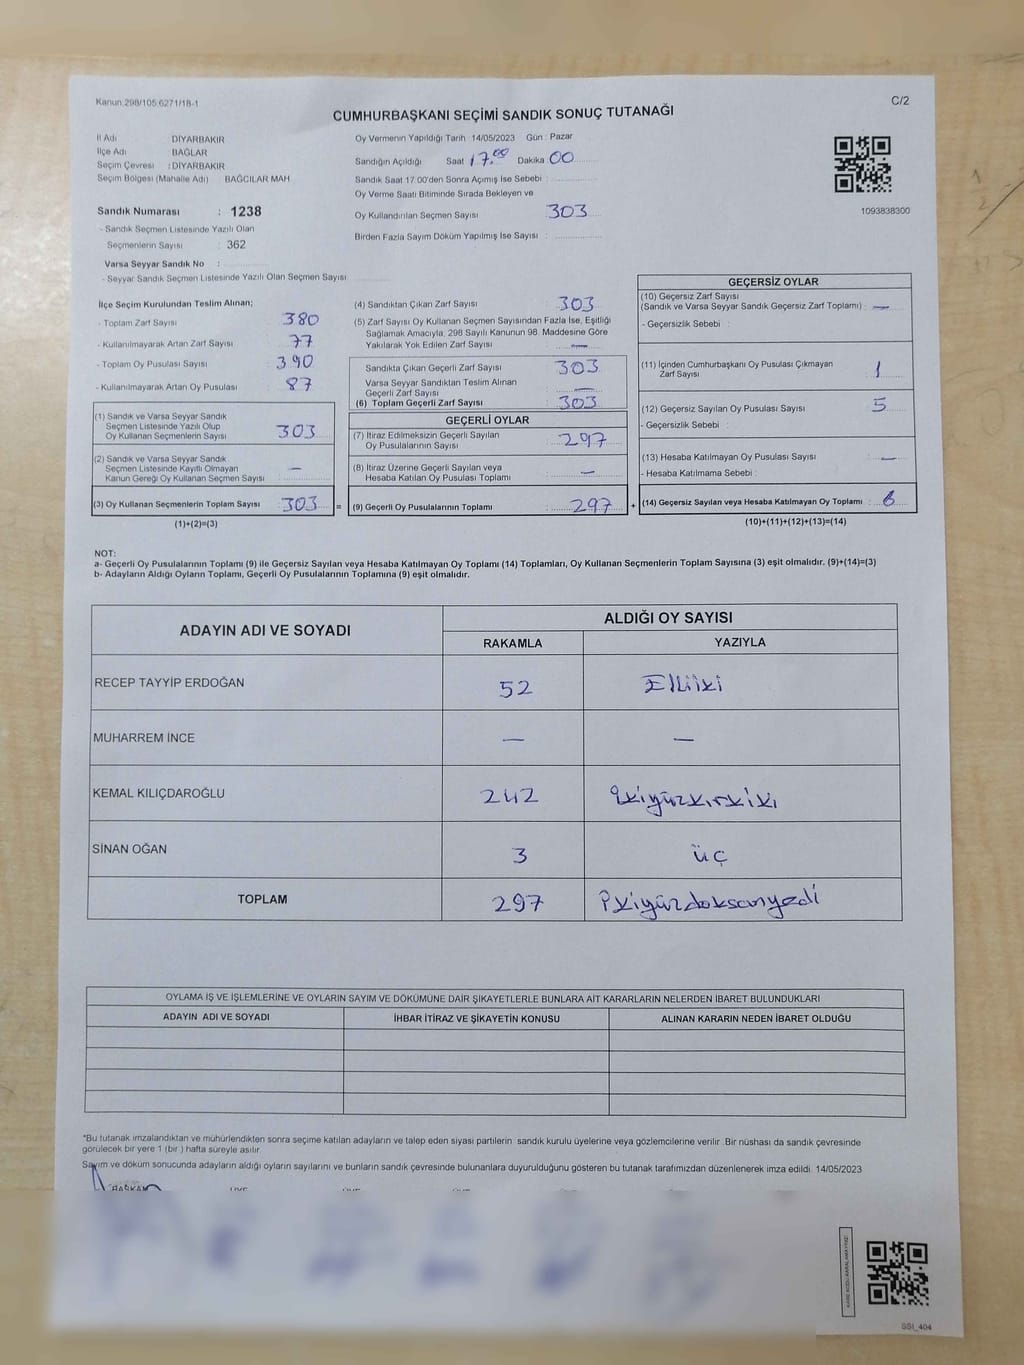 Kanun.298/105.6271/18-1
C/2
CUMHURBAŞKANI SEÇİMİ SANDIK SONUÇ TUTANAĞI
İl Adı DİYARBAKIR
İlçe Adı BAĞLAR
Seçim Çevresi : DİYARBAKIR
Seçim Bölgesi (Mahalle Adı) BAĞCILAR MAH.
Oy Vermenin Yapıldığı Tarih 14/05/2023 Gün : Pazar
Sandığın Açıldığı Saat 17.00 Dakika 00
Sandık Saat 17.00'den Sonra Açımış İse Sebebi :
Oy Verme Saati Bitiminde Sırada Bekleyen ve
Oy Kullandırılan Seçmen Sayısı 303
Birden Fazla Sayım Döküm Yapılmış İse Sayısı :
1093838300
Sandık Numarası : 1238
- Sandık Seçmen Listesinde Yazılı Olan
Seçmenlerin Sayısı : 362
Varsa Seyyar Sandık No :
- Seyyar Sandık Seçmen Listesinde Yazılı Olan Seçmen Sayısı
İlçe Seçim Kurulundan Teslim Alınan;
- Toplam Zarf Sayısı 380
- Kullanılmayarak Artan Zarf Sayısı 77
- Toplam Oy Pusulası Sayısı 390
- Kullanılmayarak Artan Oy Pusulası 87
(1) Sandık ve Varsa Seyyar Sandık
Seçmen Listesinde Yazılı Olup
Oy Kullanan Seçmenlerin Sayısı 303
(2) Sandık ve Varsa Seyyar Sandık
Seçmen Listesinde Kayıtlı Olmayan
Kanun Gereği Oy Kullanan Seçmen Sayısı —
(3) Oy Kullanan Seçmenlerin Toplam Sayısı 303 =
(1)+(2)=(3)
(4) Sandıktan Çıkan Zarf Sayısı 303
(5) Zarf Sayısı Oy Kullanan Seçmen Sayısından Fazla İse, Eşitliği
Sağlamak Amacıyla, 298 Sayılı Kanunun 98. Maddesine Göre
Yakılarak Yok Edilen Zarf Sayısı —
Sandıkta Çıkan Geçerli Zarf Sayısı 303
Varsa Seyyar Sandıktan Teslim Alınan
Geçerli Zarf Sayısı —
(6) Toplam Geçerli Zarf Sayısı 303
GEÇERLİ OYLAR
(7) İtiraz Edilmeksizin Geçerli Sayılan
Oy Pusulalarının Sayısı 297
(8) İtiraz Üzerine Geçerli Sayılan veya
Hesaba Katılan Oy Pusulası Toplamı —
(9) Geçerli Oy Pusulalarının Toplamı 297 +
GEÇERSİZ OYLAR
(10) Geçersiz Zarf Sayısı
(Sandık ve Varsa Seyyar Sandık Geçersiz Zarf Toplamı) : —
- Geçersizlik Sebebi :
(11) İçinden Cumhurbaşkanı Oy Pusulası Çıkmayan
Zarf Sayısı 1
(12) Geçersiz Sayılan Oy Pusulası Sayısı 5
- Geçersizlik Sebebi :
(13) Hesaba Katılmayan Oy Pusulası Sayısı —
- Hesaba Katılmama Sebebi :
(14) Geçersiz Sayılan veya Hesaba Katılmayan Oy Toplamı : 6
(10)+(11)+(12)+(13)=(14)
NOT:
a- Geçerli Oy Pusulalarının Toplamı (9) ile Geçersiz Sayılan veya Hesaba Katılmayan Oy Toplamı (14) Toplamları, Oy Kullanan Seçmenlerin Toplam Sayısına (3) eşit olmalıdır. (9)+(14)=(3)
b- Adayların Aldığı Oyların Toplamı, Geçerli Oy Pusulalarının Toplamına (9) eşit olmalıdır.
ADAYIN ADI VE SOYADI
ALDIĞI OY SAYISI
RAKAMLA YAZIYLA
RECEP TAYYİP ERDOĞAN 52 Elliiki
MUHARREM İNCE — —
KEMAL KILIÇDAROĞLU 242 ikiyüzkırkiki
SİNAN OĞAN 3 üç
TOPLAM 297 ikiyüzdoksanyedi
OYLAMA İŞ VE İŞLEMLERİNE VE OYLARIN SAYIM VE DÖKÜMÜNE DAİR ŞİKAYETLERLE BUNLARA AİT KARARLARIN NELERDEN İBARET BULUNDUKLARI
ADAYIN ADI VE SOYADI İHBAR İTİRAZ VE ŞİKAYETİN KONUSU ALINAN KARARIN NEDEN İBARET OLDUĞU
*Bu tutanak imzalandıktan ve mühürlendikten sonra seçime katılan adayların ve talep eden siyasi partilerin sandık kurulu üyelerine veya gözlemcilerine verilir. Bir nüshası da sandık çevresinde
görülecek bir yere 1 (bir) hafta süreyle asılır.
Sayım ve döküm sonucunda adayların aldığı oyların sayılarını ve bunların sandık çevresinde bulunanlara duyurulduğunu gösteren bu tutanak tarafımızdan düzenlenerek imza edildi. 14/05/2023
BAŞKAN
SSI_404